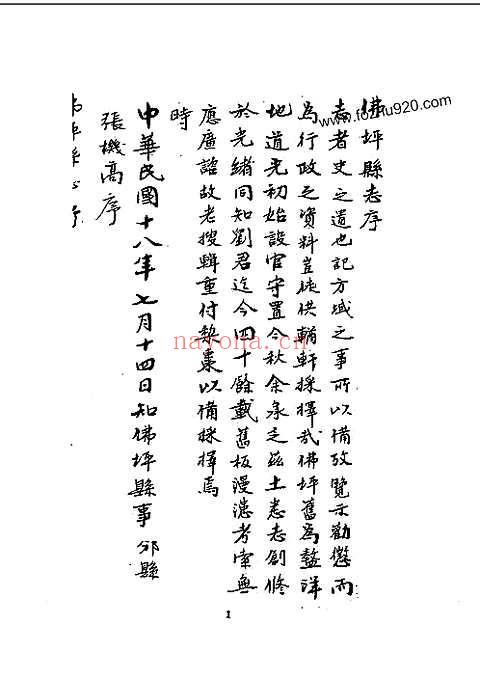 佛坪縣志序
志者史之遺也記方域之事所以備攷覽示勸懲而
為行政之資料豈徒供輶軒採擇哉佛坪舊為盩洋
地道光初始設官守置今秋余承乏茲土悉志創修
於光緒同知劉君迄今四十餘載舊板漫漶考索無
應廣諮故老搜輯重付棃棗以備採擇焉
時
中華民國十八年七月十四日知佛坪縣事邠縣
張機高序
1
www.fozhu920.com
nayona.cn